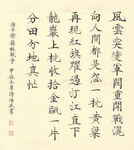 風雲突變軍閥重開戰灑
向人間都是怨一枕黃粱
再現紅旗躍過汀江直下
龍巖上杭收拾金甌一片
分田分地真忙
清平樂蔣桂戰爭 書